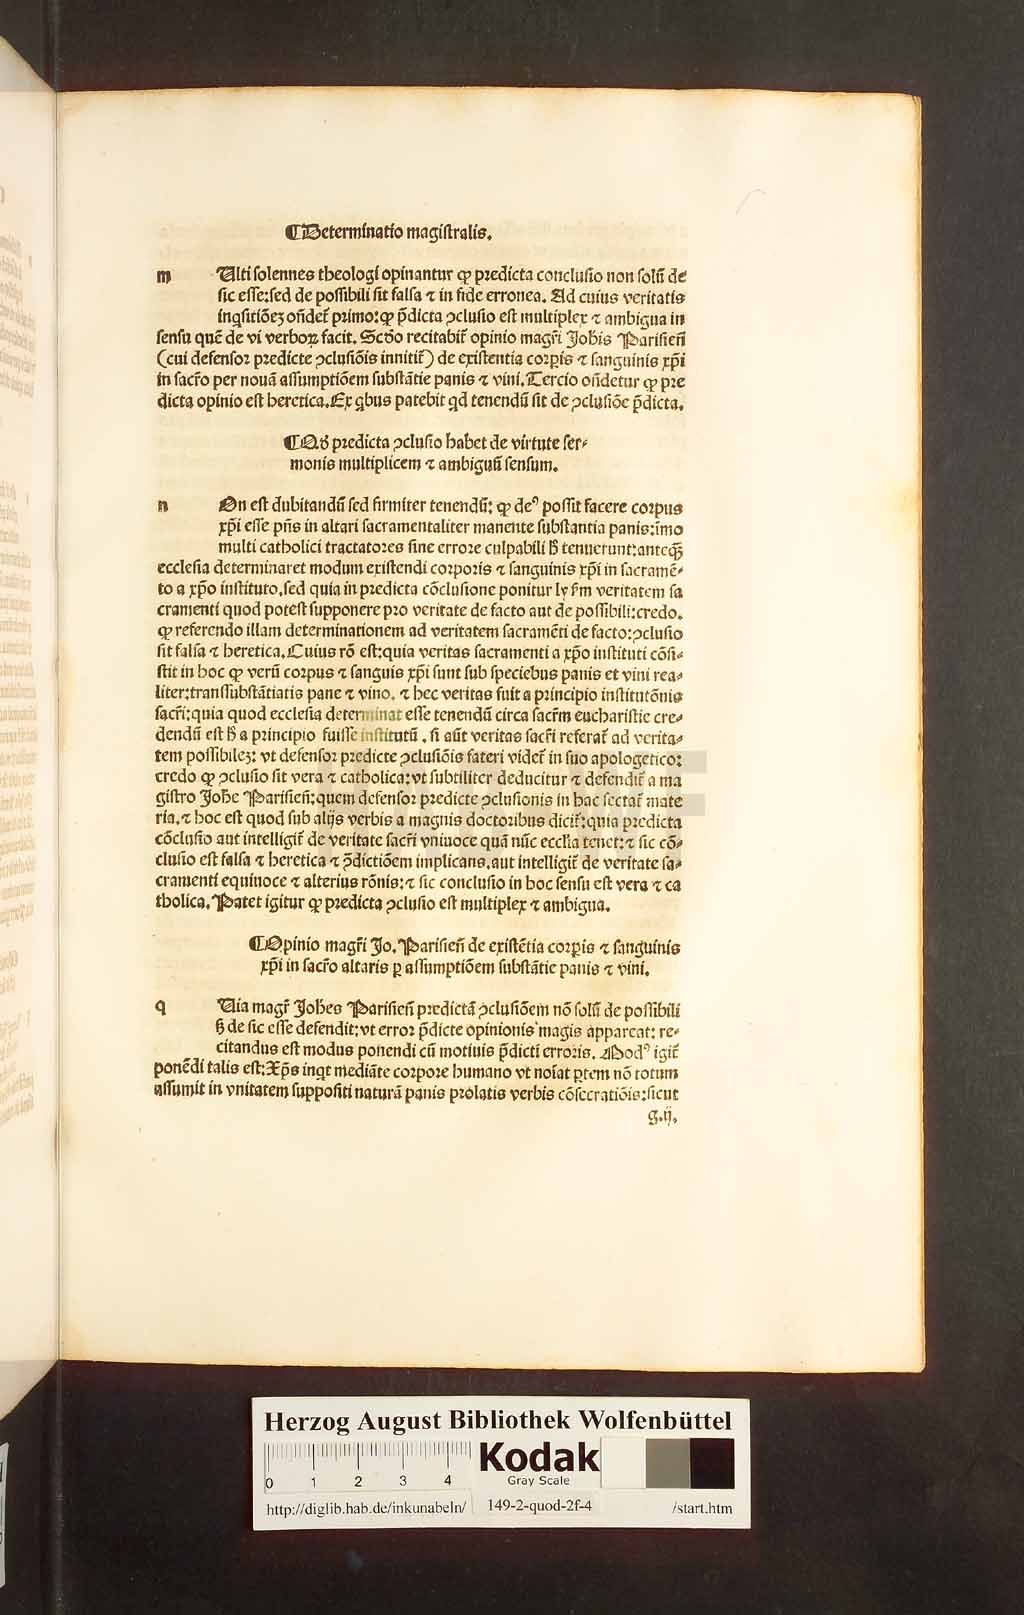 ¶Determinatio magistralis.
m Ulti solennes theologi opinantur ꝙ predicta conclusio non solũ de
sic esse:sed de possibili sit falsa ⁊ in fide erronea. Ad cuius veritatis
inqsitiõeꝫ oñdet̃ primo:ꝙ p̃dicta ꝯclusio est multiplex ⁊ ambigua in
sensu quẽ de vi verboꝝ facit. Scðo recitabit̃ opinio magr̃i Johis Parisieñ
(cui defensor predicte ꝯclusiõis innitit̃) de existentia corpis ⁊ sanguinis xp̃i
in sacr̃o per nouã assumptiõem substãtie panis ⁊ vini. Tercio oñdetur ꝙ pre
dicta opinio est heretica. Ex qbus patebit qd tenendũ sit de ꝯclusiõe p̃dicta.
¶Qð predicta ꝯclusio habet de virtute ser⸗
monis multiplicem ⁊ ambiguũ sensum.
n On est dubitandũ sed firmiter tenendũ: ꝙ deꝰ possit facere corpus
xp̃i esse pñs in altari sacramentaliter manente substantia panis:imo
multi catholici tractatores sine errore culpabili hͦ tenuerunt:anteqꝫ̃
ecclesia determinaret modum existendi corporis ⁊ sanguinis xp̃i in sacramẽ⸗
to a xp̃o instituto.sed quia in predicta cõclusione ponitur ly fm̃ veritatem sa
cramenti quod potest supponere pro veritate de facto aut de possibili:credo.
ꝙ referendo illam determinationem ad veritatem sacramẽti de facto:ꝯclusio
sit falsa ⁊ heretica. Cuius rõ est:quia veritas sacramenti a xp̃o instituti cõsi⸗
stit in hoc ꝙ verũ corpus ⁊ sanguis xp̃i sunt sub speciebus panis et vini rea⸗
liter:transsubstãtiatis pane ⁊ vino. ⁊ hec veritas fuit a principio institutõnis
sacr̃i:quia quod ecclesia determinat esse tenendũ circa sacr̃m eucharistie cre⸗
dendũ est hͦ a principio fuisse institutũ . si aũt veritas sacr̃i referat̃ ad verita⸗
tem possibileꝫ: vt defensor predicte ꝯclusiõis fateri videt̃ in suo apologetico:
credo ꝙ ꝯclusio sit vera ⁊ catholica:vt subtiliter deducitur ⁊ defendit̃ a ma
gistro Johe Parisieñ:quem defensor predicte ꝯclusionis in hac sectat̃ mate
ria.⁊ hoc est quod sub alijs verbis a magnis doctoribus dicit̃:quia predicta
cõclusio aut intelligit̃ de veritate sacr̃i vniuoce quã nũc eccl̃ia tenet:⁊ sic cõ⸗
clusio est falsa ⁊ heretica ⁊ ꝯ̃dictiõem implicans.aut intelligit̃ de veritate sa⸗
cramenti equiuoce ⁊ alterius rõnis:⁊ sic conclusio in hoc sensu est vera ⁊ ca
tholica. Patet igitur ꝙ predicta ꝯclusio est multiplex ⁊ ambigua.
¶Opinio magr̃i Jo. Parisieñ de existẽtia corpis ⁊ sanguinis
xp̃i in sacr̃o altaris ꝑ assumptiõem substãtie panis ⁊ vini.
q Uia magr̃ Johes Parisieñ predictã ꝯclusiõem nõ solũ de possibili
ß de sic esse defendit:vt error p̃dicte opinionis magis appareat: re⸗
citandus est modus ponendi cũ motiuis p̃dicti erroris. Modꝰ igit̃
ponẽdi talis est:Xp̃s inqt mediãte corpore humano vt noĩat ptem nõ totum
assumit in vnitatem suppositi naturã panis prolatis verbis cõsecratiõis:sicut
g.ij.
HAB WF
Herzog August Bibliothek Wolfenbüttel
0 1 2 3 4
Kodak
Gray Scale
http://diglib.hab.de/inkunabeln/ 149-2-quod-2f-4 /start.htm